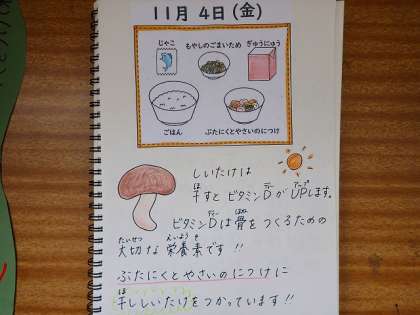 11月 4日(金)
じゃこ もやしのごまいため ぎゅうにゅう
ごはん ぶたにくとやさいのにつけ
しいたけは
干すと ビタミンDが UPします。
ビタミンDは骨をつくるための
大切な 栄養素です!!
ぶたにくとやさいのにつけに
干ししいたけをつかっています!!